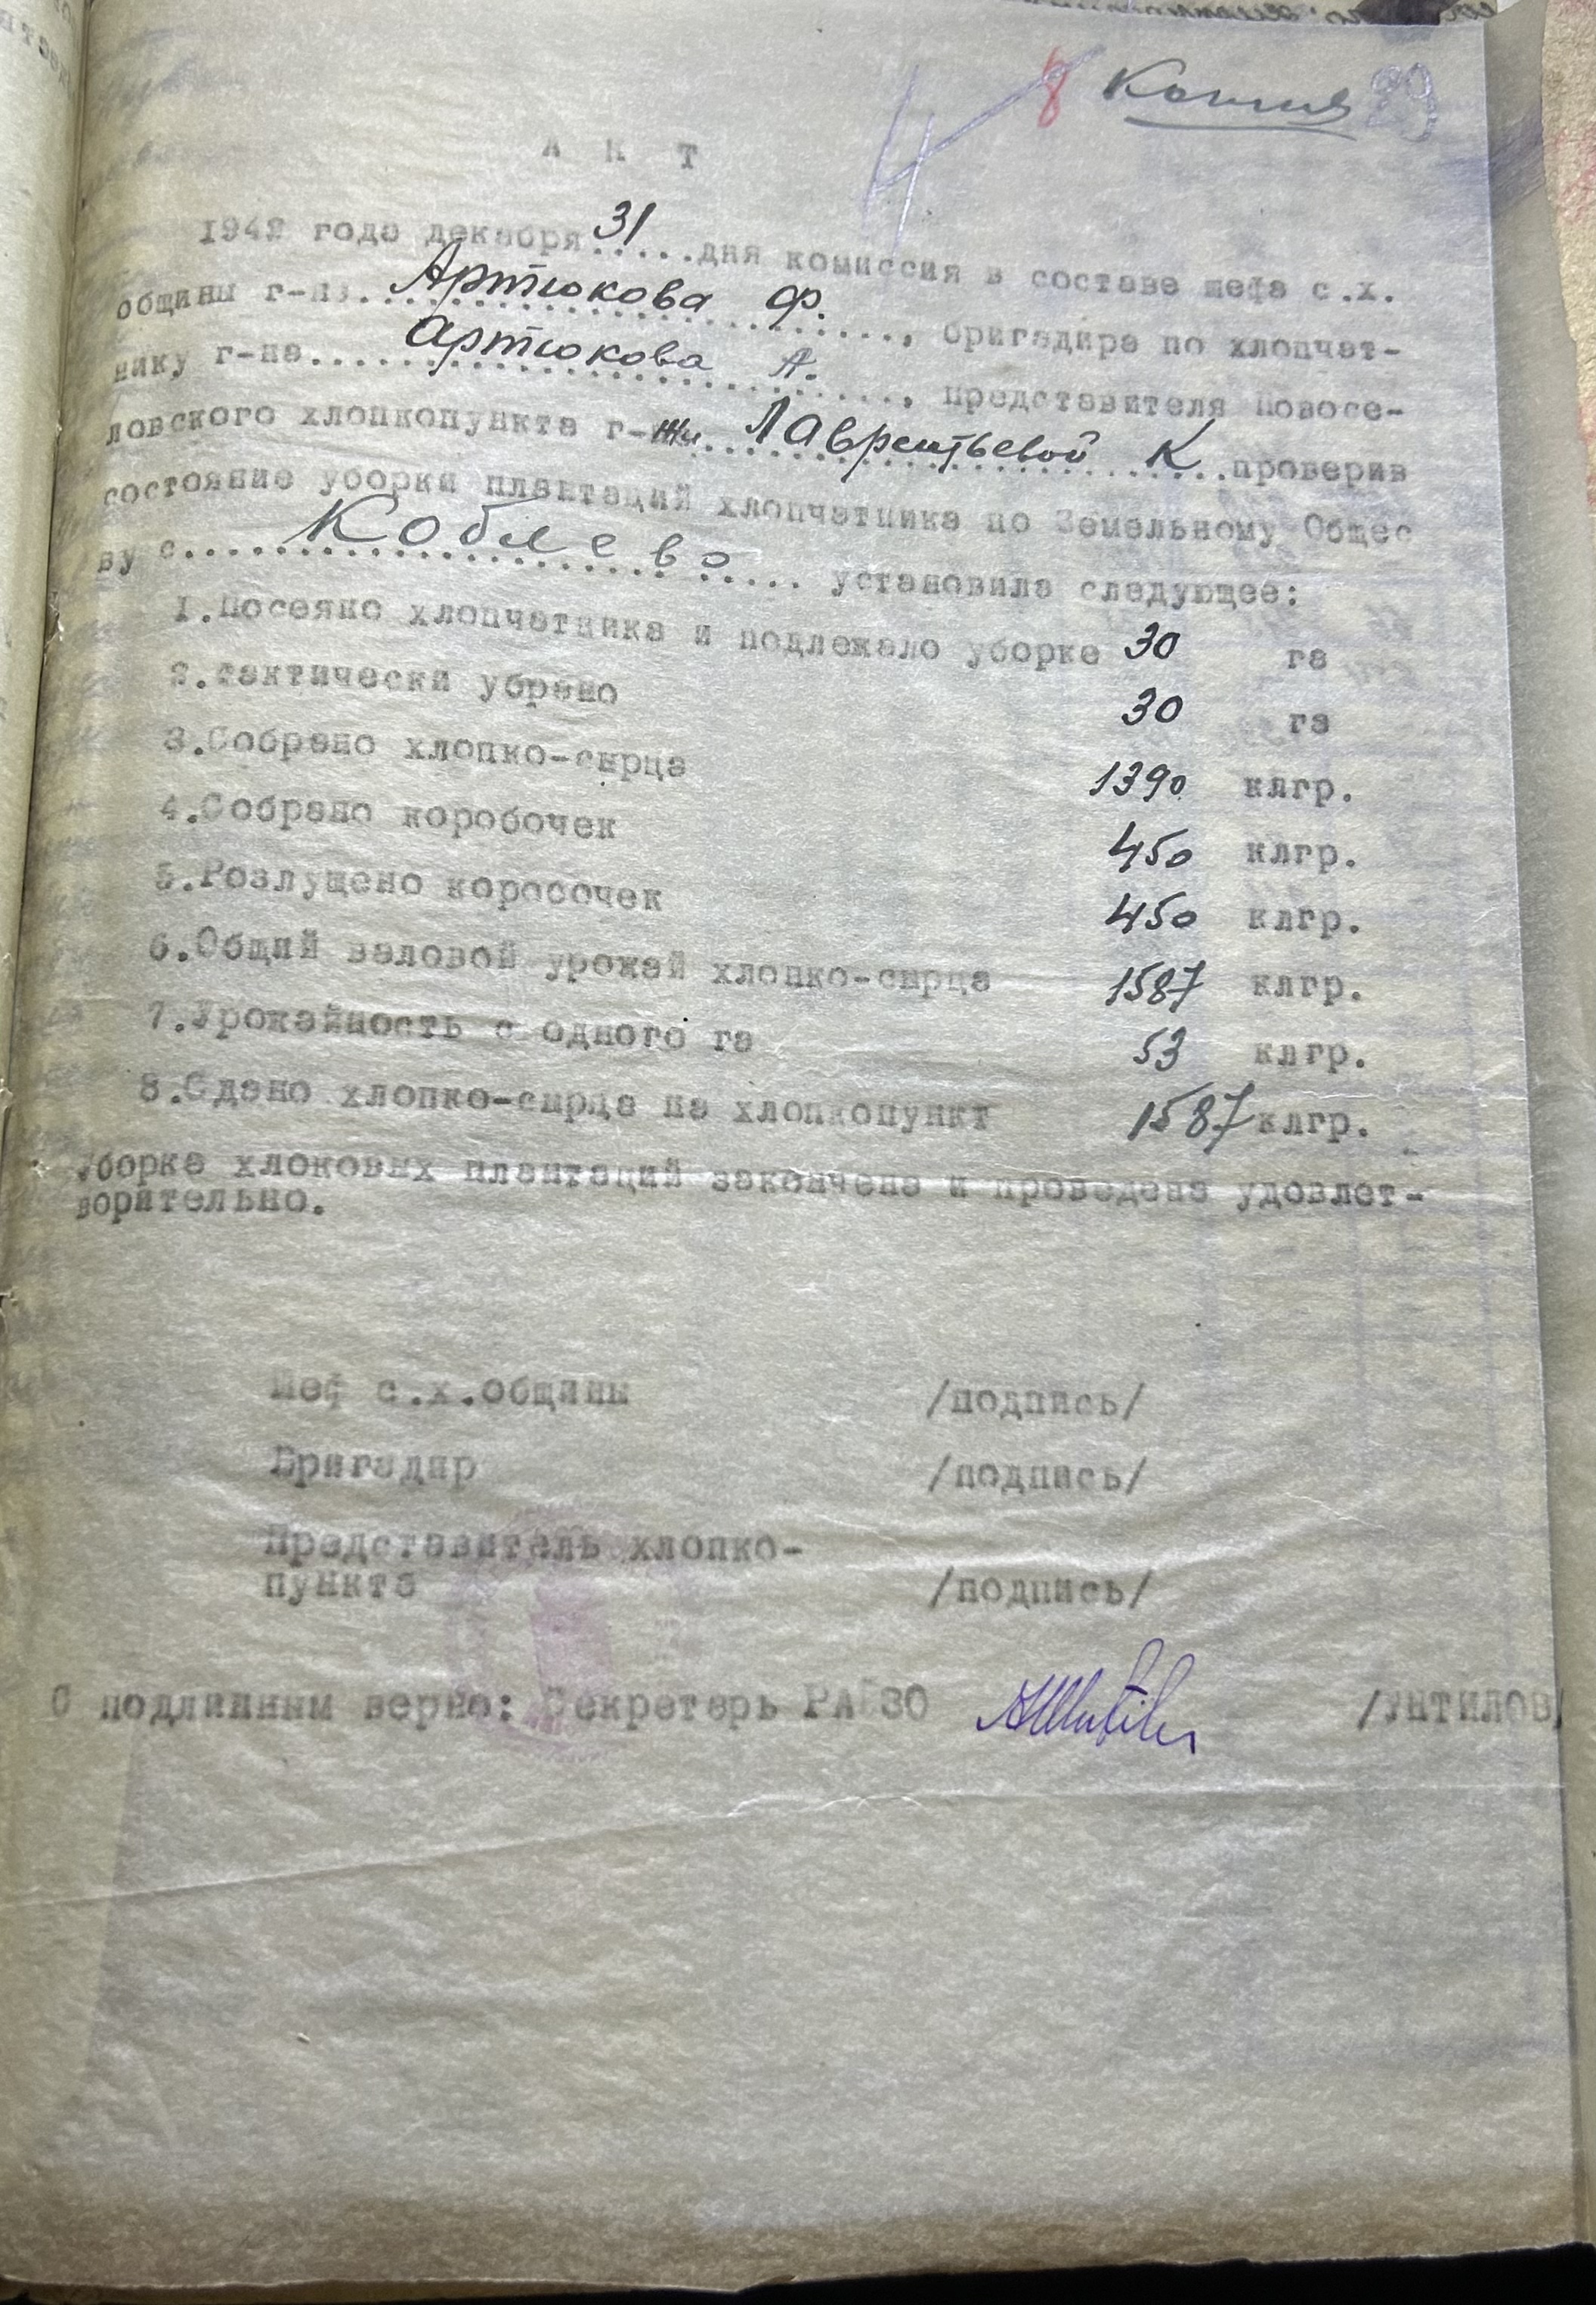 8 Копия 29
4
А К Т
1942 года декабря 31 .....дня комиссия в составе шефа с.х.
общины г-на. Артюкова Ф. ......, бригадира по хлопчат-
нику г-на.... Артюкова А. ......, представителя Новосе-
ловского хлопкопункта г-жи. Лаврентьевой К ..проверив
состояние уборки плантаций хлопчатника по Земельному Общес
ву с..... Коблево ..... установила следующее:
1.Посеяно хлопчатника и подлежало уборке 30 га
2.Фактически убрано 30 га
3.Собрано хлопко-сырца 1390 клгр.
4.Собрано коробочек 450 клгр.
5.Розлущено коробочек 450 клгр.
6.Общий валовой урожай хлопко-сырца 1587 клгр.
7.Урожайность с одного га 53 клгр.
8.Сдано хлопко-сырца на хлопкопункт 1587 клгр.
Уборка хлоковых плантаций закончена и проведена удовлет-
ворительно.
Шеф с.х.общины /подпись/
Бригадир /подпись/
Представитель хлопко-
пункта /подпись/
С подлинным верно: Секретарь РАЙЗО /УНТИЛОВ/